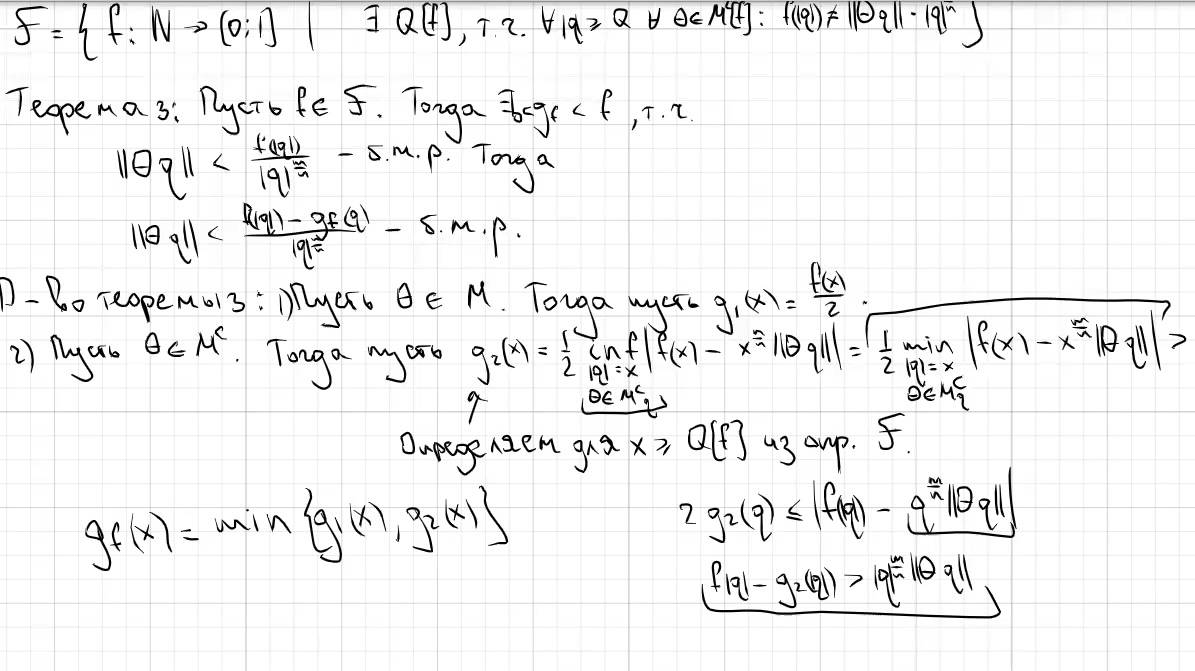 F = { f: N → [0;1] | ∃ Q[f], т.ч. ∀|q| ≥ Q ∀ Θ∈M^c[f]: f(|q|) ≠ ||Θq||·|q|^{m/n} }
Теорема 3: Пусть f ∈ F. Тогда ∃ 0<g_f < f, т.ч.
||Θq|| < f(|q|)/|q|^{m/n} – б.м.р. Тогда
||Θq|| < (f(|q|) – g_f(q))/|q|^{m/n} – б.м.р.
D-во теоремы 3: 1) Пусть Θ ∈ M. Тогда пусть g₁(x) = f(x)/2.
2) Пусть Θ∈M^c. Тогда пусть g₂(x) = 1/2 inf_{|q|=x, Θ∈M^c_q} |f(x) – x^{m/n}||Θq||| = 1/2 min_{|q|=x, Θ∈M^c_q} |f(x) – x^{m/n}||Θq||| >
Определяем для x ≥ Q[f] из опр. F.
g_f(x) = min {g₁(x), g₂(x)}
2 g₂(q) ≤ |f(q) – q^{m/n}||Θq|||
f|q| – g₂(q) > |q|^{m/n}||Θq||